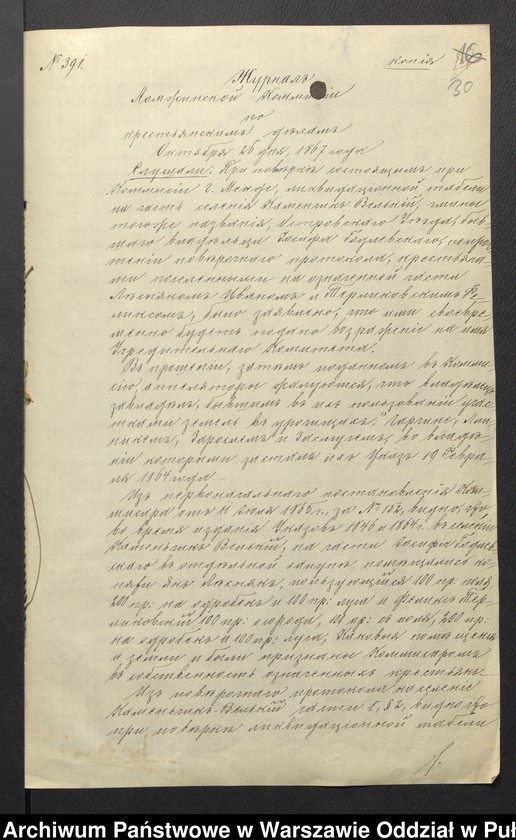 № 391.
копія
16
30
Журналъ
Ломжинской Коммисіи
по
крестьянскимъ дѣламъ
Октября 26 дня, 1867 года
Слушали: При повѣркѣ состоящимъ при
Коммисіи г. ликвидаціонной табели
на часть селенія Каменчикъ Велькій, гмины
тогоже названія, Островскаго Уѣзда, быв-
шаго владѣльца Іосифа Годлевскаго, по проч-
теніи повѣрочнаго протокола, крестьяна-
ми поселенными на означенной части
Лисякомъ Иваномъ и Терликовскимъ Фе-
ликсомъ, было заявлено, что ими своевре-
менно будетъ подано возраженіе на имя
Учредительнаго Комитета.
Въ прошеніи, затѣмъ поданномъ въ Комми-
сію, аппеляторы жалуются, что владѣлецъ
завладѣлъ, бывшимъ въ ихъ пользованіи учас-
тками земель въ урочищахъ:
во владѣ-
ніи которыми засталъ ихъ Указъ 19 Февра-
ля 1864 года.
Изъ первоначальнаго постановленія Ком-
мисара отъ 11 Іюля 1867 г., за № 152, видно, что
во время изданія Указовъ 1846 и 1864 г. въ селеніи
Каменчикъ Велькій, на части Іосифа Годлев-
скаго въ отдѣльной халупѣ помѣщались ко-
Янъ пользующійся 100 пр: поля
200 пр: на одробекъ и 100 пр: луга и Феликсъ Тер-
ликовскій 100 пр: огорода, пр: съ поля, 200 пр:
на одробекъ и 100 пр: луга, каковыя помѣщенія
и земли и были признаны Коммисаромъ
въ собственность означенныхъ крестьянъ.
Изъ повѣрочнаго протокола на селеніе
Каменчикъ-Велькій части видно, что
при повѣркѣ ликвидаціонной табели
Archiwum Państwowe w Warszawie Oddział w Puł